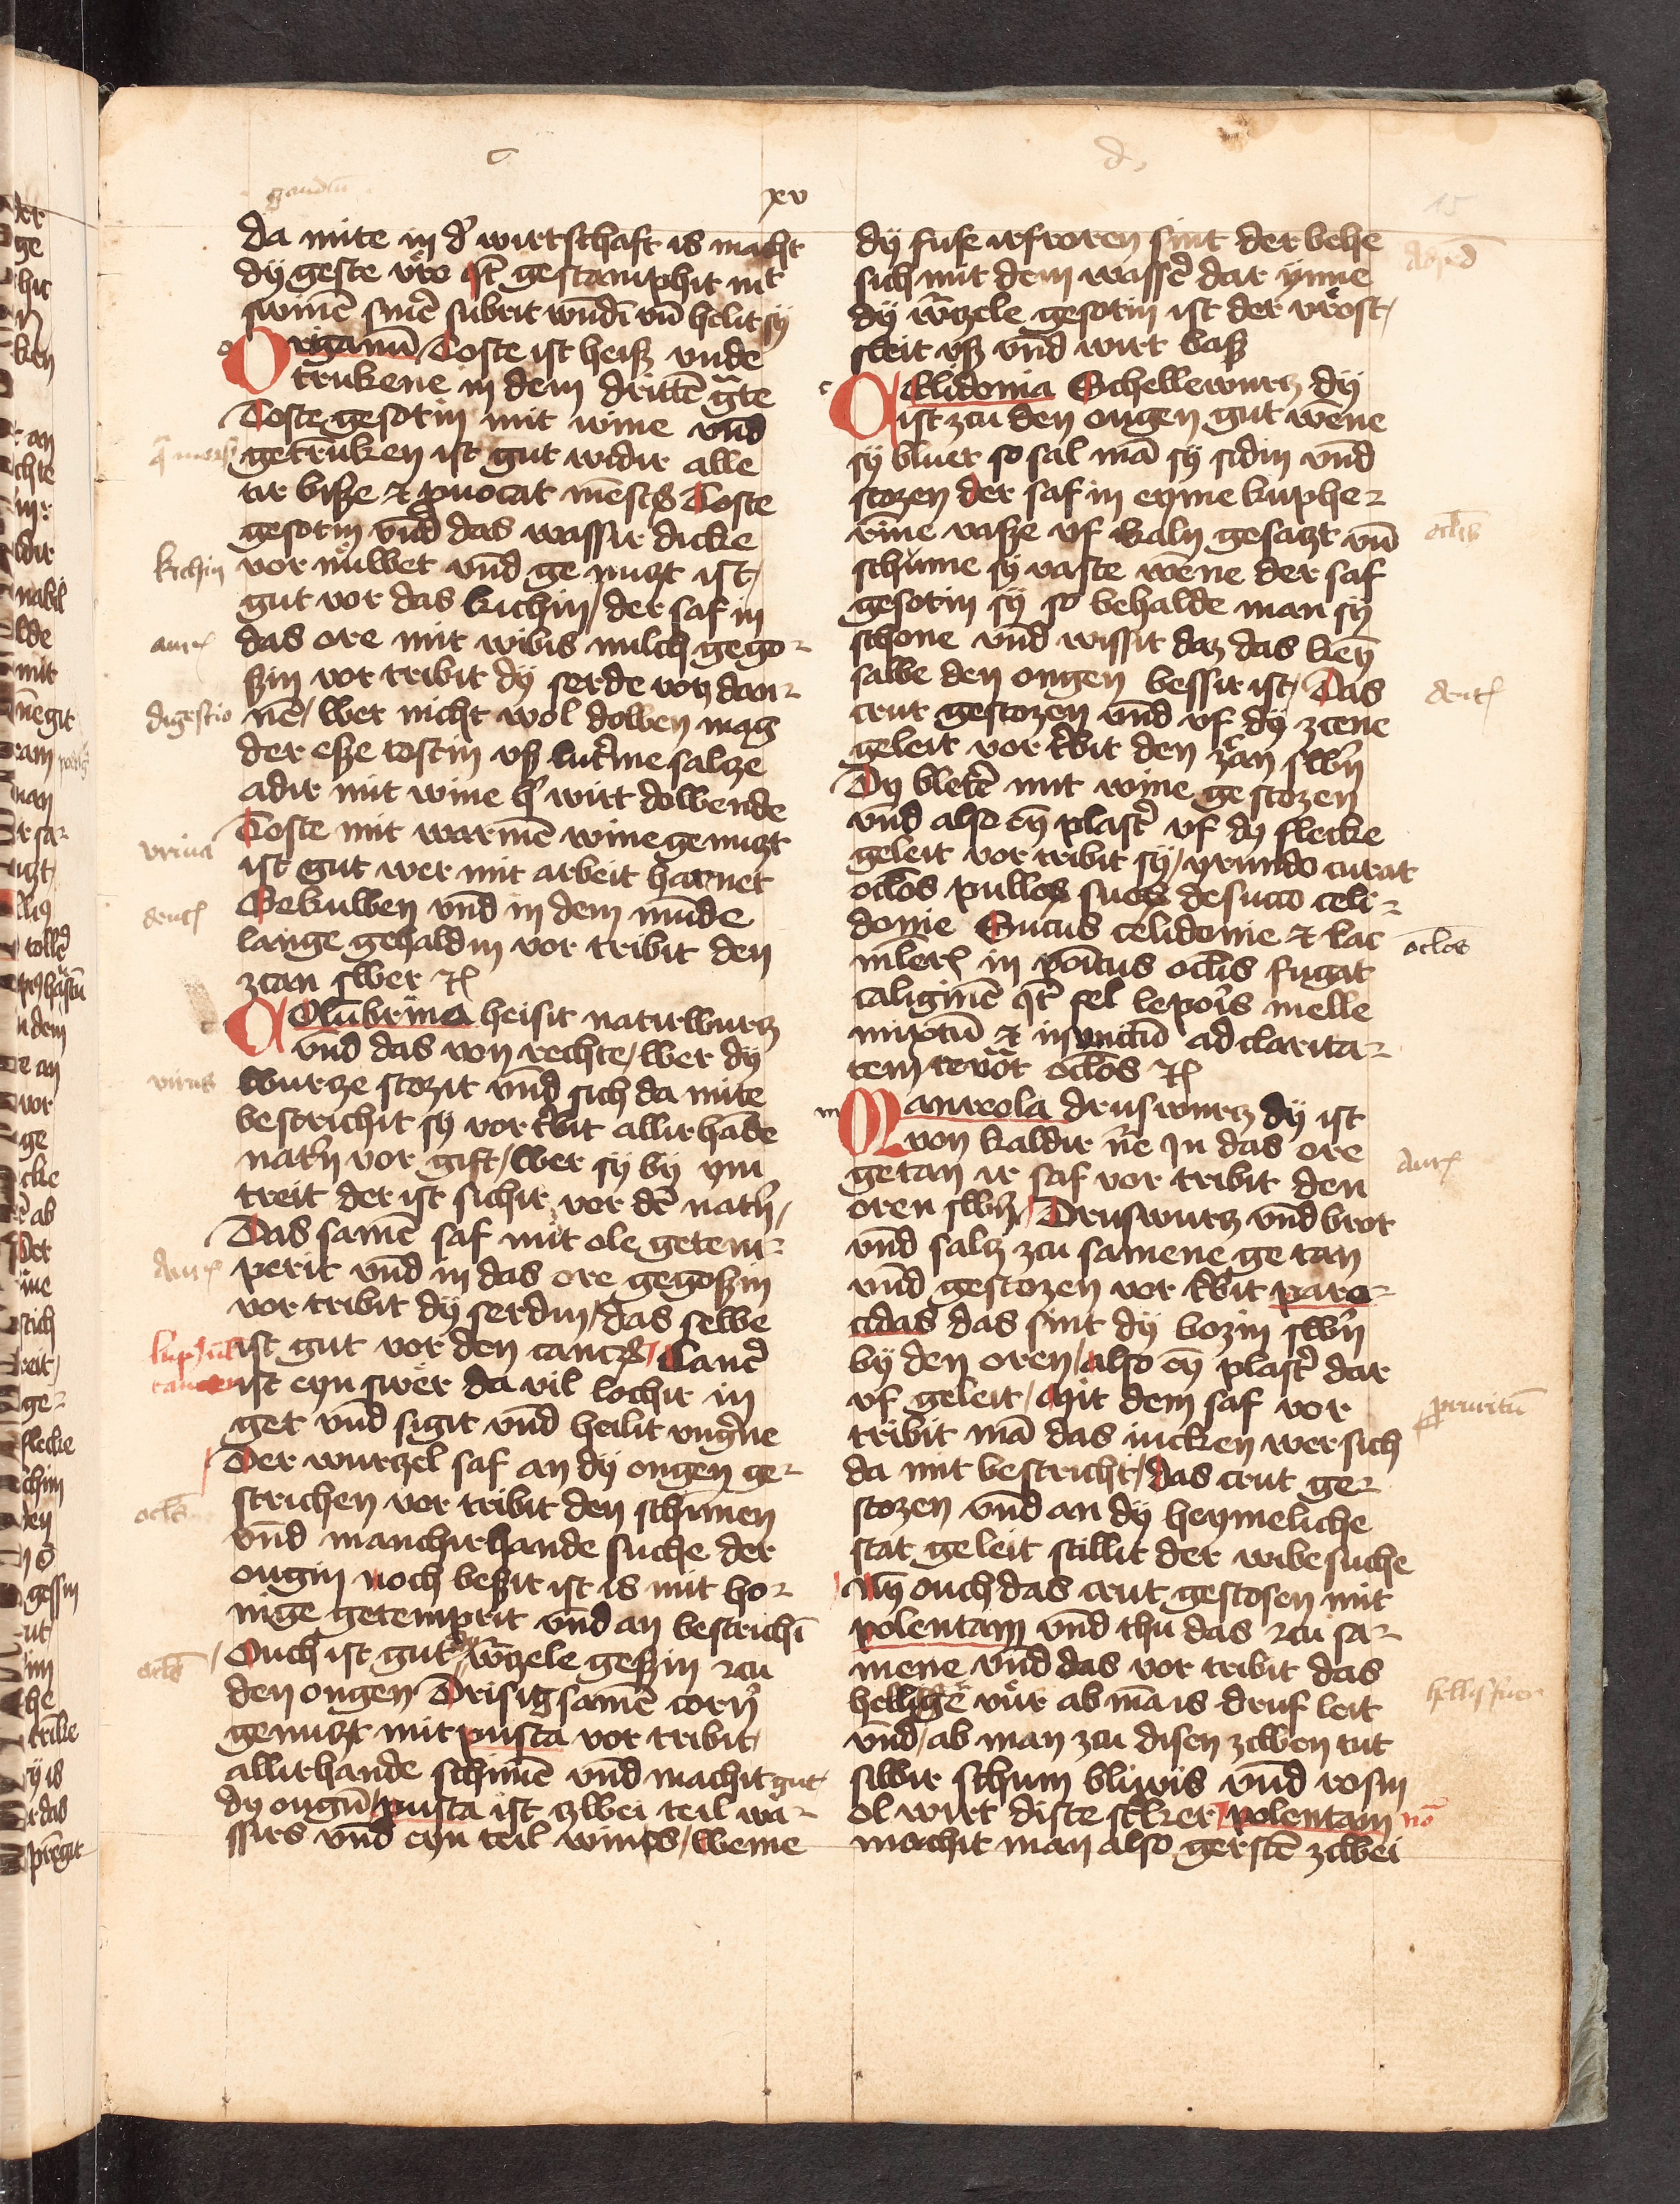 c
d
gaudiu
xv
15
da mite in d' wirtschaft is macht
dy geste vro Jt gestamphit mit
swinē smer subrit wūdī vn̄ helit sy
Origanū Coste ist heiſz vnde
trukene in dem drittē gte
Coste gesotin mit wine vnd
getrūken ist gut widir alle
tir biſze et puocat mēst Coste
gesotin vnd das wassir dicke
vor nuwet vnd ge nuczt ist /
gut vor das kichin / der saf in
das ore mit wibis milch gego-
ſzin vor tribit dy serde von dan-
nē / wer nicht wol dowen mag
der eſze costin vſz lutme salcze
adir mit wine h' wirt dowende
Coste mit warmē wine genuczt
ist gut wer mit arbeit harnet
Gekuwen vnd in dem mūde
lange gehaldin vor tribit den
zcan swer
Colūbrina heisit naturwurcz
vnd das von rechte / wer dy
wurcze stozit vnd sich da mite
bestrichit sy vor tbit allirhāde
nat'n vor gift / wer sy by ym
treit der ist sichir vor dē nat'n /
Das samē saf mit ole getem-
perit vnd in das ore gegoſzin
vor tribit dy serdin / das selbe
ist gut vor den canc' / Canc'
ist eyn swer da vil lochir in
get vnd sigit vnd heilit vng'ne
Der wurczel saf an dy ougen ge-
strichen vor tribit den schimen
vnd manchirhande suche der
ougin noch beſzir ist is mit ho-
nige getemprit vnd an bestrichī
Ouch ist gut dy w'czele geſzin zcu
den ougen Drisig samē corn'
genuczt mit pusca vor tribit
allirhande schimē vnd machit gut
dy ougū pusca ist zwei teil wa-
ssirs vnd eyn teil winis / weme
kichin
aur
digestio
vrina
dent
virus
Aur
cancer
ocl's
ocl's
dy fuſe irfroren sint der behe
sich mit dem wasser dar ynne
dy w'czele gesotin ist der vrost /
sleit vſz vnd wirt baſz
Celidonia Schellewurcz dy
ist zcu den ougen gut wēne
sy bluet so sal mā sy sidin vnd
stozen der saf in eyme kuphe-
rīne vaſze vf kaln gesaczt vn̄
schume sy vaste wēne der saf
gesotin sy so behalde man sy
schone vnd wissit daz das keȳ
salbe den ougen bessir ist / Das
crut gestozen vnd vf dy zcene
geleit vor t'bit den zcan sw'n
Dy blet' mit wine gestozen
vnd also eȳ plast' vf dy flecke
geleit vor tribit sy / yrundo curat
oclos pullos suos de succo celi-
donie Sucus celidonie et lac
mler in poitus oclis fugat
caliginē Jt fel lepor's melle
mixtū et inunctū ad clarita-
tem reuōt oclos
Maureola druswurcz dy ist
von kaldir n'e In das ore
getan ir saf vor tribit den
oren sw'n / Druswurcz vnd brot
vnd salcz zcu samene ge tan
vnd gestozen vor t'bit paro-
cidas das sint dy bozin sw'n
by den oren / also eȳ plast' dar
vf geleit / Mit dem saf vor
tribit mā das iucken wer sich
da mit bestricht / das crut ge-
stozen vnd an dy heymeliche
stat geleit stillit der wibe suche
Nȳ ouch das crut gestosen mit
polentam vnd thu das zcu sa-
mene vnd das vor tribit das
hellige vur ab mā is druf leit
vnd / ab man zcu disen zcwen tut
silbir schum bliwis vnd rosin
ol wirt diste st'ker / polentam
machit man also gerstē zcwei
oclis
dent
oclos
Aur
pruritū
hellisfuer
no